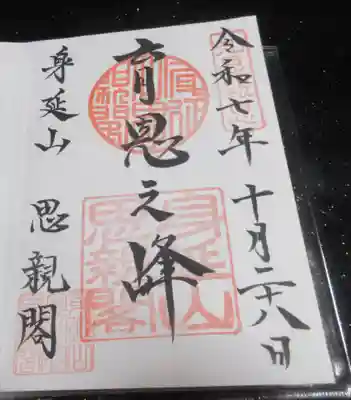 令和七年 十月二十八日
育恩之峰
身延山 思親閣
身延山
思親閣